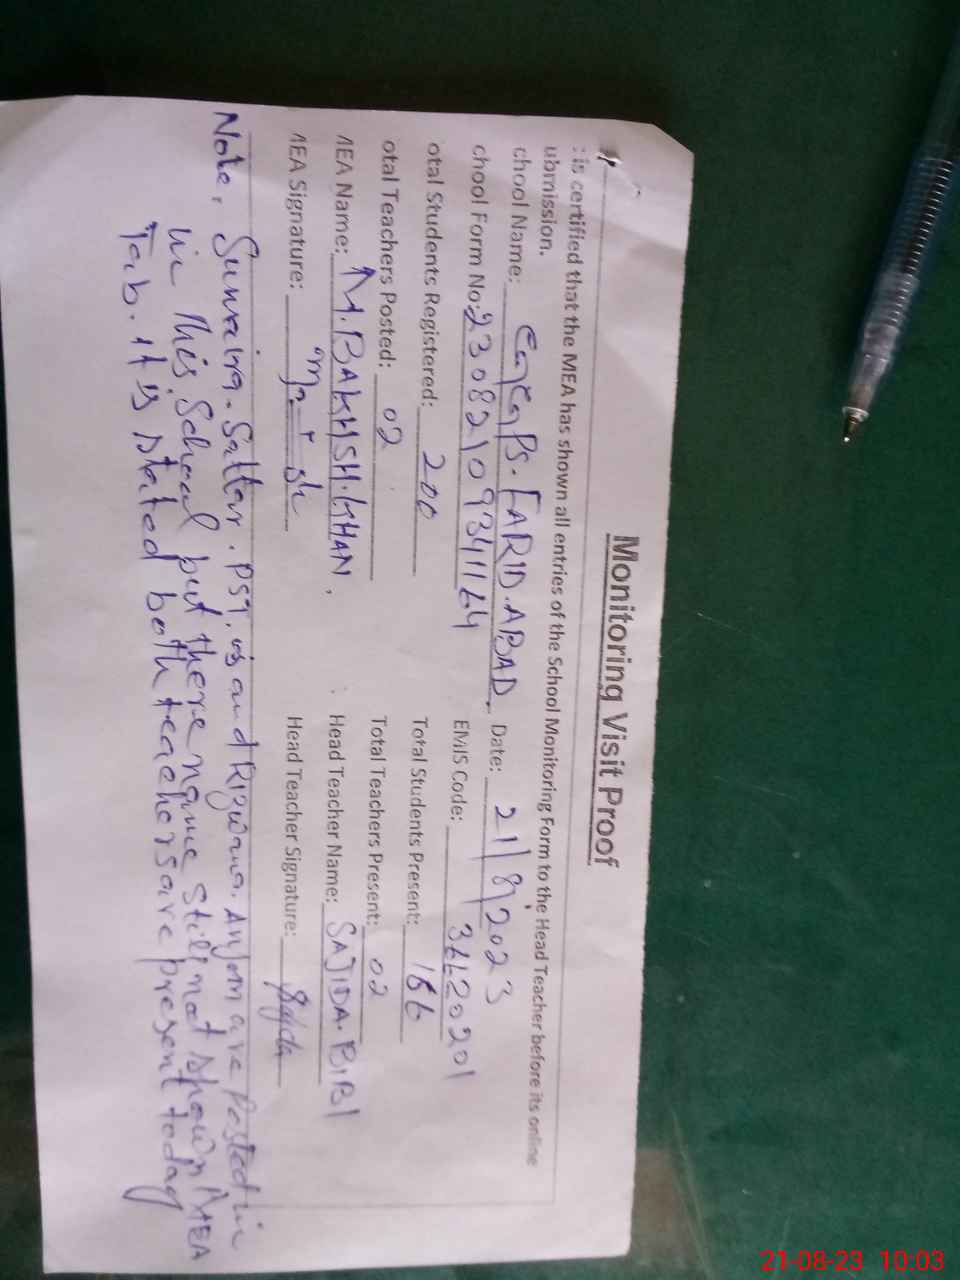 Monitoring Visit Proof
: is certified that the MEA has shown all entries of the School Monitoring Form to the Head Teacher before its online
ubmission.
chool Name: GGPS. FARID.ABAD. Date: 21/8/2023
chool Form No: EMIS Code:
otal Students Registered: 200 Total Students Present: 166
otal Teachers Posted: 02 Total Teachers Present: 02
MEA Name: M.BAKHSH.KHAN. Head Teacher Name: SAJIDA.BIBI
MEA Signature: Head Teacher Signature: Sajida
Note, Sattar. PST. and Rizwana. Anjum are Posted in
in this School but there name still not shown MEA
Tab. it is stated both teachers are present today
21-08-23 10:03